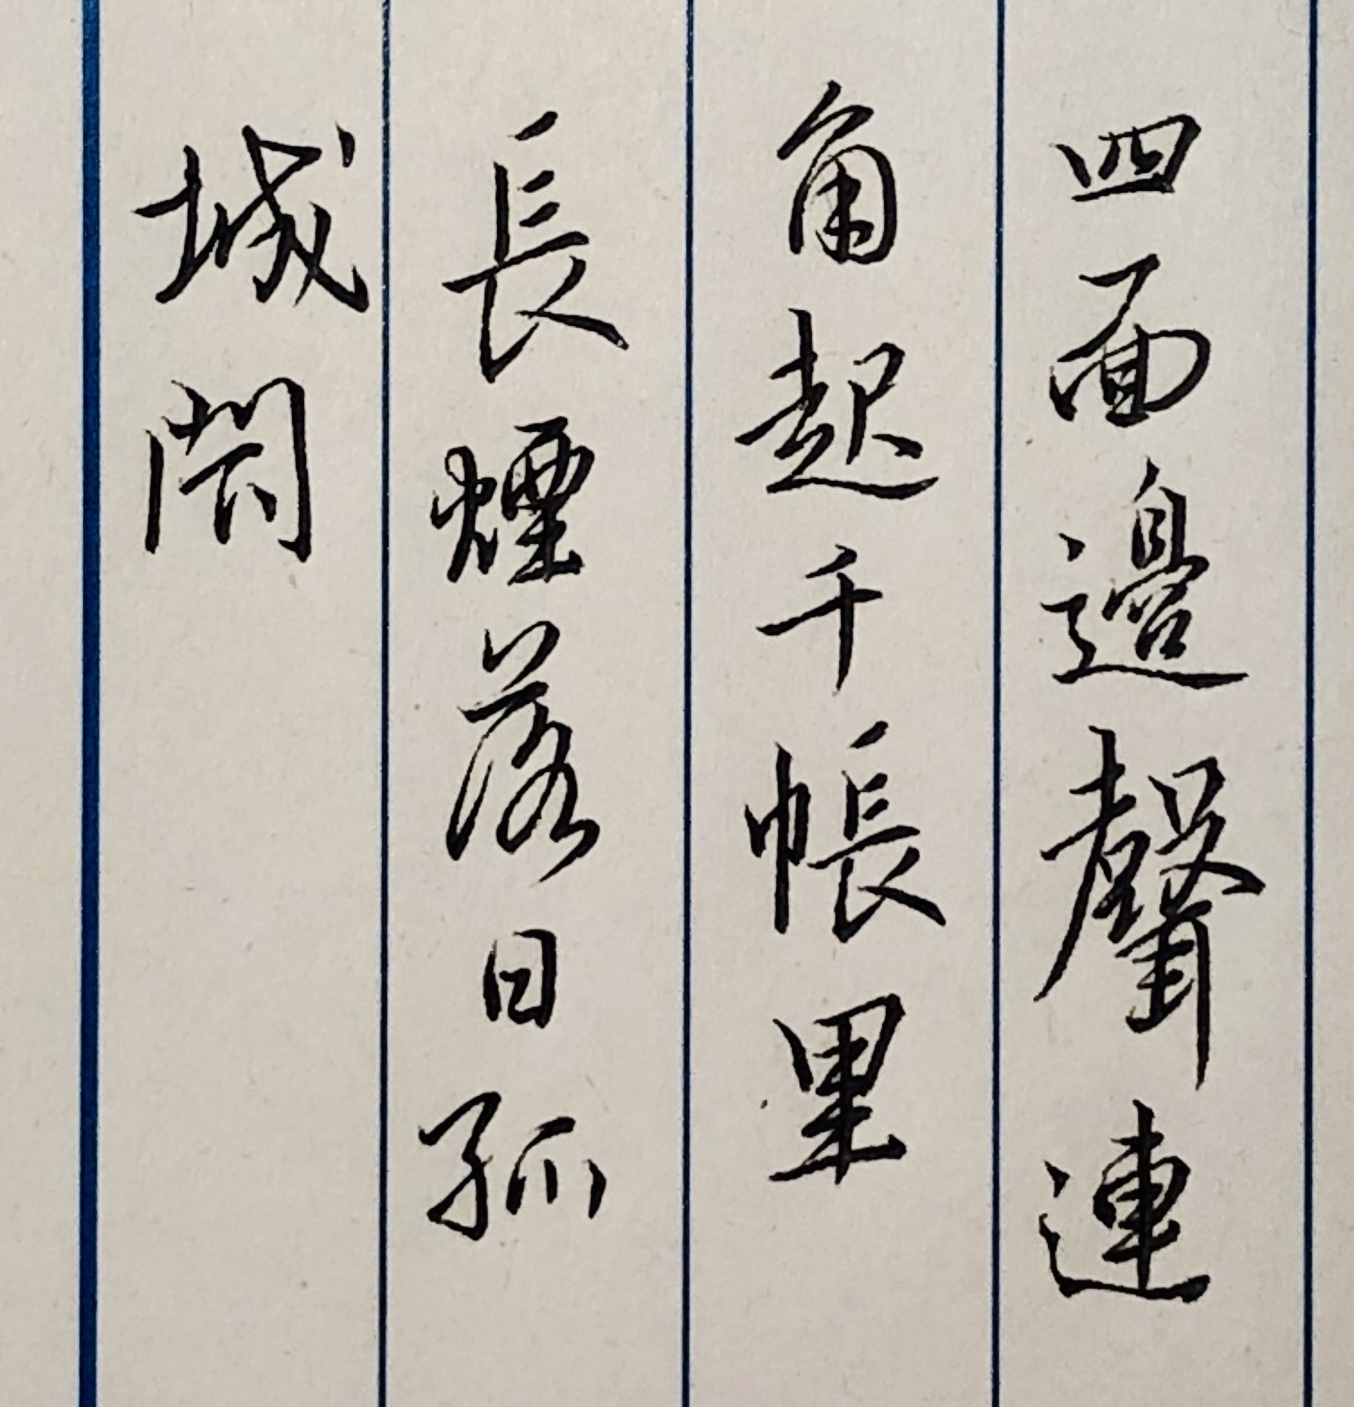 四面邊聲連
角起千帳里
長煙落日孤
城閉